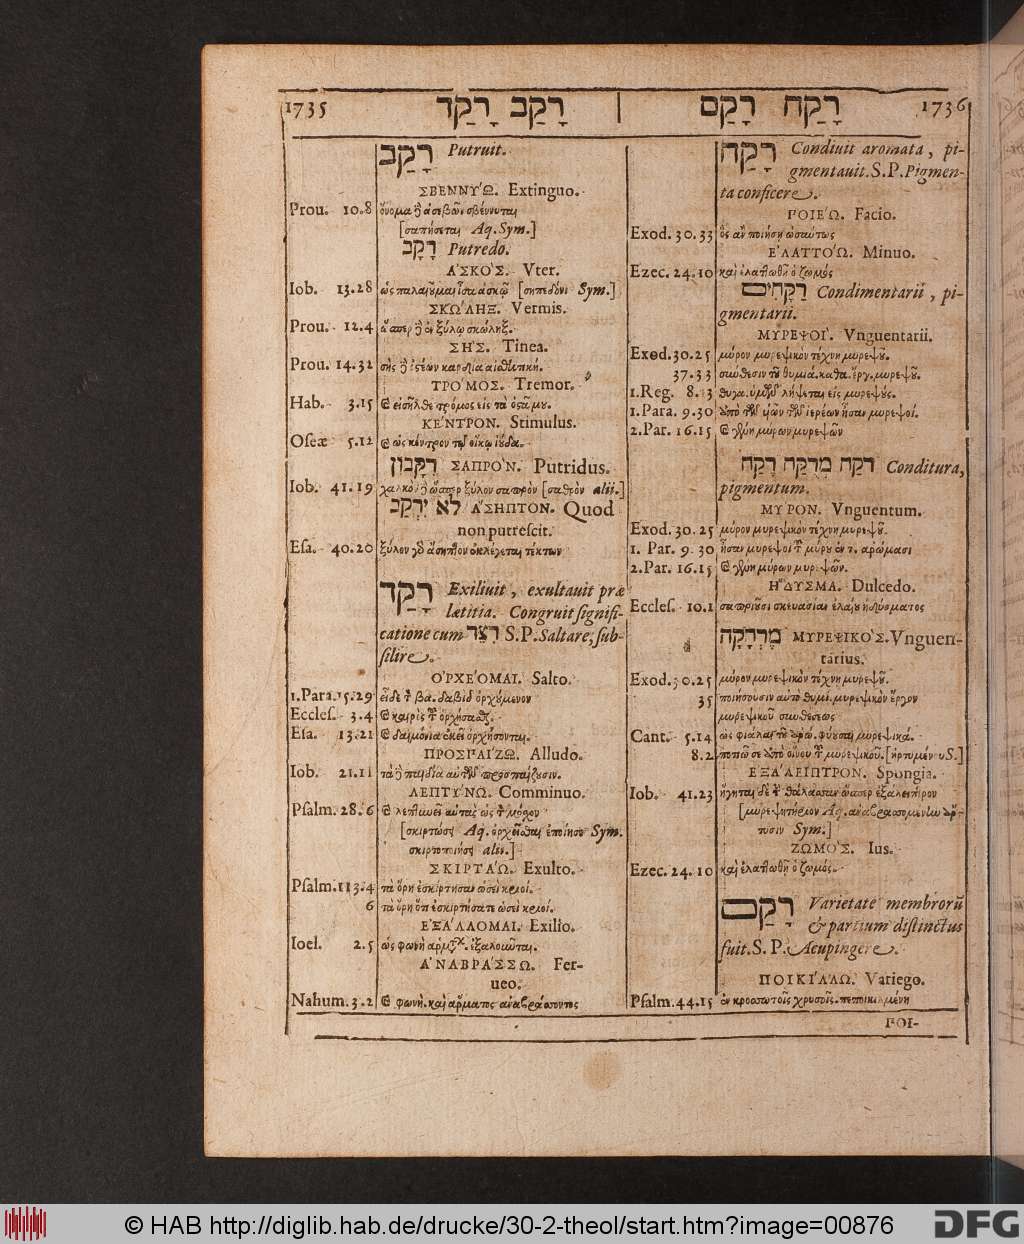 1735 רָקַב רָקַד | רָקַח רָקַם 1736
רָקַב Putruit.
ΣΒΕΝΝΥΏ. Extinguo.
Prou. 10.8 ὄνομα ἀσεβῶν σβέννυται
[σαπήσεται Aq. Sym.]
רָקָב Putredo.
ἈΣΚΌΣ. Vter.
Iob. 13.28 ὡς παλαιοῦμαι ἶσα ἀσκῷ [σηπεδόνι Sym.]
ΣΚΏΛΗΞ. Vermis.
Prou. 12.4 ὥσπερ ξύλῳ σκώληξ.
ΣΉΣ. Tinea.
Prou. 14.32 σὴς ὀστέων καρδία αἰσθητική.
ΤΡΌΜΟΣ. Tremor.
Hab. 3.15 εἰσῆλθε τρόμος εἰς τὰ ὀστᾶ μου.
ΚΈΝΤΡΟΝ. Stimulus.
Oseæ 5.12 ὡς κέντρον τῷ οἴκῳ ἰούδα.
רִקָּבוֹן ΣΑΠΡΌΝ. Putridus.
Iob. 41.19 χαλκὸν ὥσπερ ξύλον σαπρὸν [σαθρὸν alii.]
לֹא יִרְקַב ἌΣΗΠΤΟΝ. Quod
non putrescit.
Esa. 40.20 ξύλον ἄσηπτον ἐκλέγεται τέκτων
רָקַד Exiliuit, exultauit præ
lætitia. Congruit signifi-
catione cum רצד S.P. Saltare, sub-
silire.
ὈΡΧΈΟΜΑΙ. Salto.
1.Para. 15.29 εἶδε τ βα. δαβὶδ ὀρχούμενον
Eccles. 3.4 καιρὸς ὀρχήσασθ.
Esa. 13.21 δαιμόνια ἐκεῖ ὀρχήσονται.
ΠΡΟΣΠΑΊΖΩ. Alludo.
Iob. 21.11 τὰ παιδία αὐτῶν προσπαίζουσιν.
ΛΕΠΤΎΝΩ. Comminuo.
Psalm. 28.6 λεπτυνεῖ αὐτὰς ὡς μόσχον
[σκιρτώσῃ Aq. ὀρχεῖσθαι ἐποίησε Sym.
σκιρτοποιήσῃ alii.]
ΣΚΙΡΤΆΩ. Exulto.
Psalm. 113.4 τὰ ὄρη ἐσκίρτησαν ὡσεὶ κριοί.
6 τὰ ὄρη ὅτι ἐσκιρτήσατε ὡσεὶ κριοί.
ἘΞΆΛΛΟΜΑΙ. Exilio.
Ioel. 2.5 ὡς φωνὴ ἁρμάτ. ἐξαλοῦνται.
ἈΝΑΒΡΆΣΣΩ. Fer-
ueo.
Nahum. 3.2 φωνὴ. καὶ ἅρματος ἀναβράσσοντος
רָקַח Condiuit aromata, pi-
gmentauit. S.P. Pigmen-
ta conficere.
ΠΟΙΈΩ. Facio.
Exod. 30.33 ὃς ἂν ποιήσῃ ὡσαύτως
ἘΛΑΤΤΌΩ. Minuo.
Ezec. 24.10 καὶ ἐλαττωθῇ ὁ ζωμός
רַקָּחִים Condimentarii, pi-
gmentarii.
ΜΥΡΕΨΟΊ. Vnguentarii.
Exod. 30.25 μύρον μυρεψικὸν τέχνῃ μυρεψοῦ.
37.33 σύνθεσιν τοῦ θυμιά. καθα. ἔργ. μυρεψοῦ.
1.Reg. 8.13 θυγα. ὑμῶν λήψεται εἰς μυρεψούς.
1.Para. 9.30 ἀπὸ τῶν υἱῶν τῶν ἱερέων ἦσαν μυρεψοί.
2.Par. 16.15 γένη μύρων μυρεψῶν
רקח מִרְקַח רֶקַח Conditura,
pigmentum.
ΜΎΡΟΝ. Vnguentum.
Exod. 30.25 μύρον μυρεψικὸν τέχνῃ μυρεψοῦ.
1. Par. 9.30 ἦσαν μυρεψοὶ τ μύρου ἐν τ. ἀρώμασι
2.Par. 16.15 γένη μύρων μυρεψῶν.
ἭΔΥΣΜΑ. Dulcedo.
Eccles. 10.1 σαπριοῦσι σκευασίαν ἐλαίου ἡδύσματος
מֶרְקָחָה ΜΥΡΕΨΙΚΌΣ. Vnguen-
tarius.
Exod. 30.25 μύρον μυρεψικὸν τέχνῃ μυρεψοῦ.
35 ποιήσουσιν αὐτὸ θυμί. μυρεψικὸν ἔργον
μυρεψικοῦ συνθέσεως
Cant. 5.14 ὡς φιάλαι τοῦ ἀρώ. φύουσαι μυρεψικά.
8.2 ποτιῶ σε ἀπὸ οἴνου τ μυρεψικοῦ. [ἠρτυμένου S.]
ἘΞΆΛΕΙΠΤΡΟΝ. Spongia.
Iob. 41.23 ἥγηται δὲ τ θάλασσαν ὥσπερ ἐξάλειπτρον
[μυρεψητήριον Aq. ἀναβρασσομένων
τυσιν Sym.]
ΖΩΜΌΣ. Ius.
Ezec. 24.10 καὶ ἐλαττωθῇ ὁ ζωμός.
רָקַם Varietate membrorū
& partium distinctus
fuit. S. P. Acupingere.
ΠΟΙΚΊΛΛΩ. Variego.
Psalm. 44.15 ἐν κροσσωτοῖς χρυσοῖς. πεποικιλμένη
ΠΟΙ-
© HAB http://diglib.hab.de/drucke/30-2-theol/start.htm?image=00876
DFG